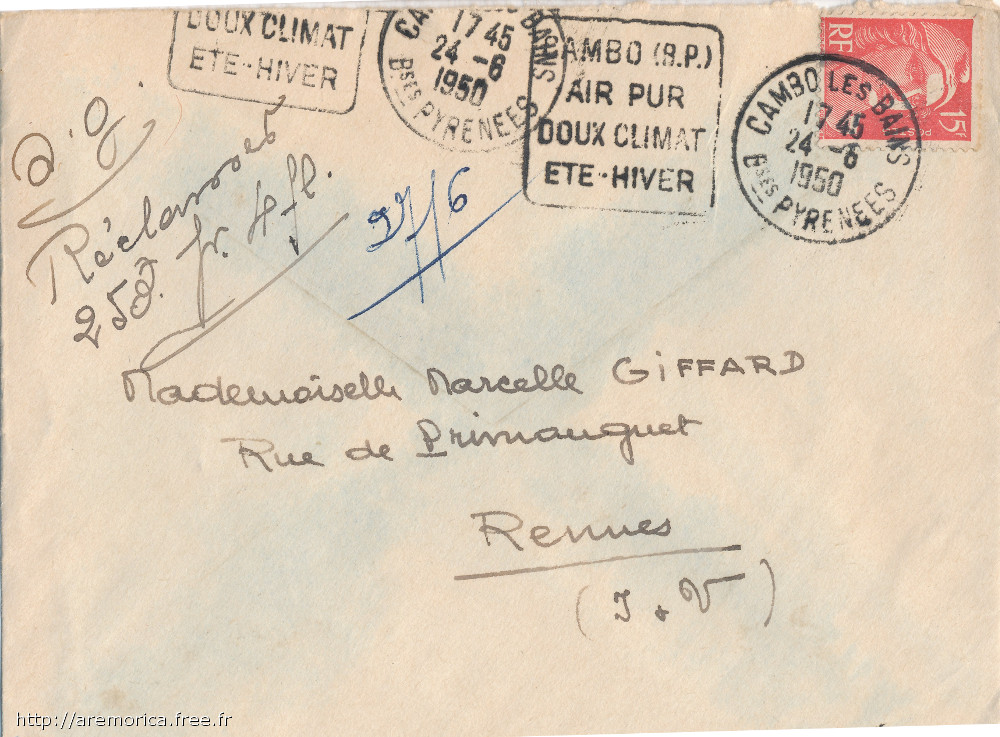 DOUX CLIMAT
ETE-HIVER
BAINS
17 45
24 -6
1950
Bses PYRENEES
CAMBO (B.P.)
AIR PUR
DOUX CLIMAT
ETE-HIVER
CAMBO LES BAINS
17 45
24 -6
1950
Bses PYRENEES
RF
15F
Réclamer
fr. 4 fl.
27/6
Mademoiselle Marcelle GIFFARD
Rue de Primauguet
Rennes
(I & V)
http://aremorica.free.fr